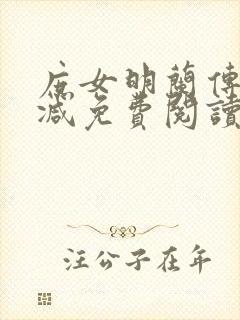 庶女明蘭傳
減免費閱讀
汪公子在年